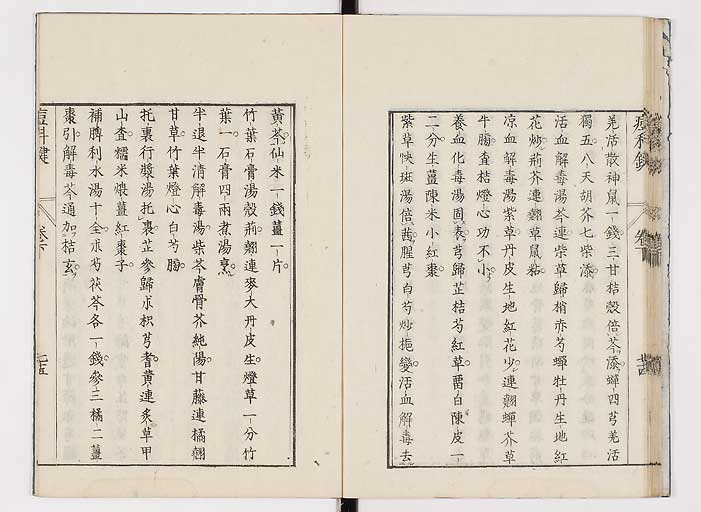 羌活散神鼠一錢三甘桔殼倍芩添蟬四芎羌活
獨五八天胡芥七柴添
活血解毒湯芩連柴草歸梢赤芍蟬牡丹生地紅
花炒荊芥連翹草鼠粘
凉血解毒湯紫草丹皮生地紅花少連翹蟬芥草
牛膓查桔燈心功不小
養血化毒湯固表芎歸芷桔芍紅草畱白陳皮一
二分生薑陳米小紅棗
紫草快斑湯倍茜腥芎白芍炒拖變活血解毒去
黃芩仙米一錢薑一片
竹葉石膏湯殼荊翹連麥大丹皮生燈草一分竹
葉一石膏四兩煮湯烹
半退半清解毒湯柴芩膚骨芥純陽甘藤連橘翹
甘草竹葉燈心白芍膓
托裏行漿湯托裏芷參歸朮枳芎耆黃連炙草甲
山查糯米煨薑紅棗子
補脾利水湯十全朮芍茯芩各一錢參三橘二薑
棗引解毒芩通加桔玄
痘科鍵 卷下 七五